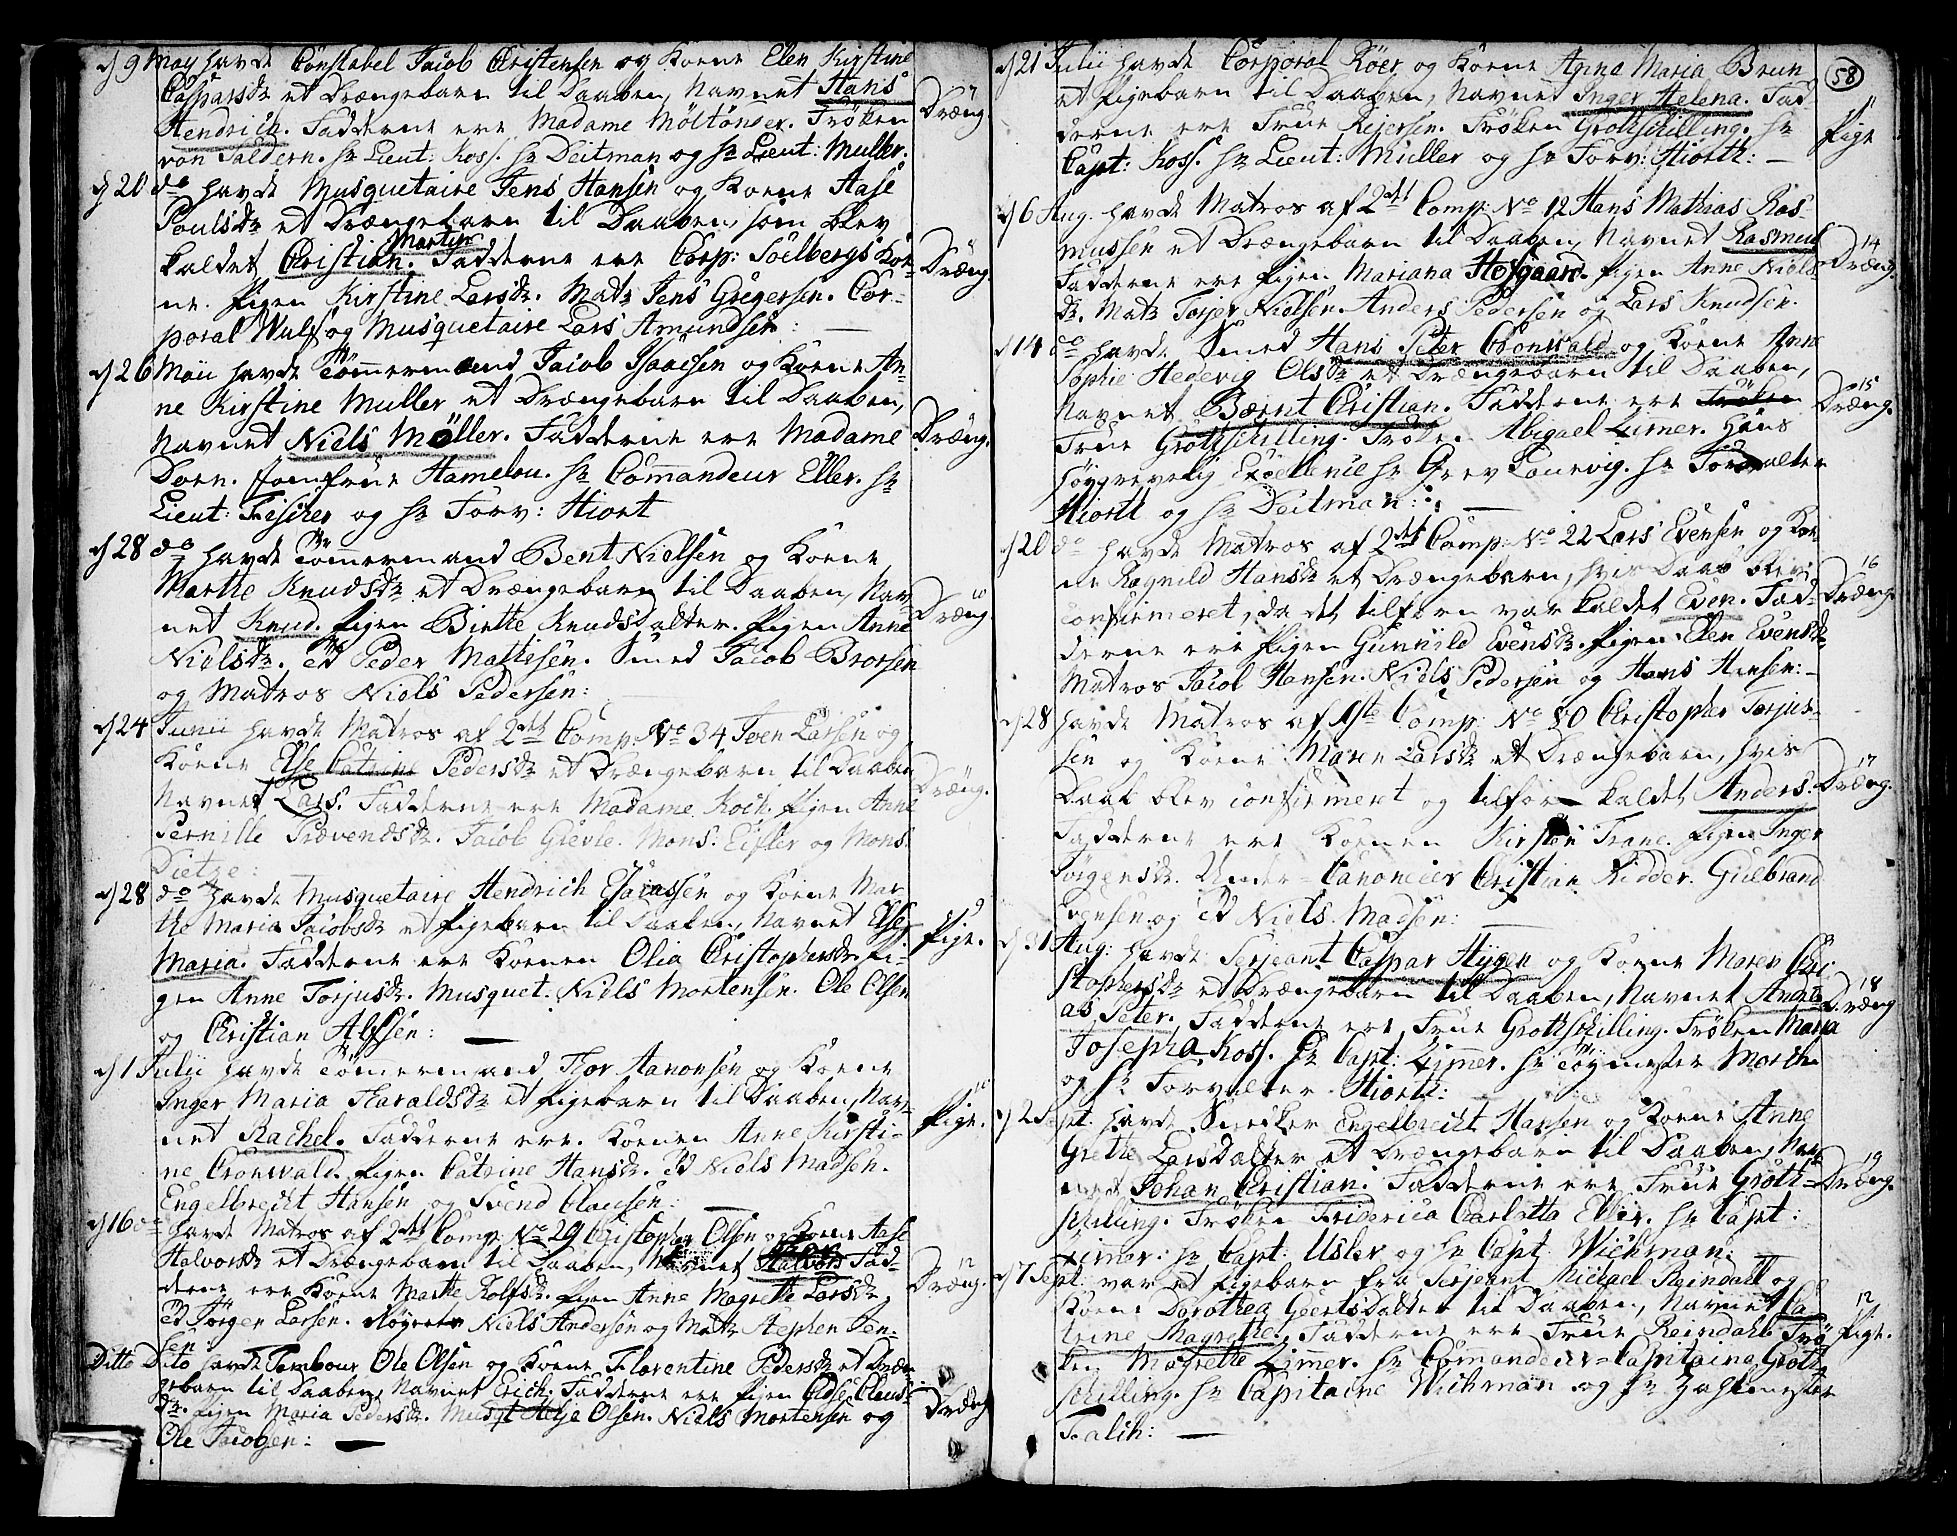 d 9 May havde Constabel Jacob Christensen og Koene Elen Kirstine
Caspersdr et Drængebarn til Daaben, Navnet Hans
Hendrich. Fadderne ere Madame Möltönser. Fröken
von Saldern. Hr Lieut: Koss. Hr Deitman og Hr Lieut: Muller.
Dräng
d 20 do havde Musquetaire Jens Hansen og Koene Aase
Poulsdr et Drængebarn til Daaben, som blev
kaldet Christian Martin. Fadderne ere Corp: Soelbergs Koe-
ne. Pigen Kirstine Larsdr. Matr Jens Gregersen. Cor-
poral Wulf og Musquetaire Lars Amundsen: —
Dräng.
d 26 Maii havde Tömmermand Jacob Isaacsen og Koene An-
ne Kirstine Muller et Drængebarn til Daaben,
Navnet Niels Möller. Fadderne ere Madame
Dorn. Jomfrue Hamelou. Hr Commandeur Eller. Hr
Lieut: Fischer og Hr Forv: Hiort
Dräng.
d 28 do havde Tömmermand Bent Nielsen og Koene
Marthe Knudsdr et Drængebarn til Daaben, Nav-
net Knud. Pigen Birtte Knudsdatter. Pigen Anne
Nielsdr. Peder Mathisen. Smed Jacob Brorsen
og Matros Niels Pedersen:
Dräng
d 24 Junii havde Matros af 2det Comp. No 34 Iven Larsen og
Koene Else Catrine Pedersdr et Drængebarn til Daaben
Navnet Lars. Fadderne ere Madame Koch. Pigen Anne
Pernille Prævendsdr. Jacob Grevle. Mons: Eisler og Mons:
Dietze:
Dräng.
d 28 do havde Musquetaire Hendrich Esaiassen og Koene Mar
the Maria Jacobsdr et Pigebarn til Daaben, Navnet Else
Maria. Fadderne ere Koenen Olia Christophersdr. Pi-
gen Anne Torjusdr. Musquet. Niels Mortensen. Ole Olsen
og Christian Alfsen: —
9
Pige.
d 1 Julii havde Tömmermand Thor Aanonsen og Koene
Inger Maria Haraldsdr et Pigebarn til Daaben, Nav-
net Rachel. Fadderne ere. Koenen Anne Kirsti-
ne Cronwald. Pigen Catrine Hansdr. Niels Madsen.
Engelbrecht Hansen og Svend Clausen:
Pige.
d 16 do havde Matros af 2det Comp. No 29 Christopher Olsen og Koene Aase
Halvorsdr et Drængebarn til Daaben, Navnet Halvor. Fad-
derne ere Koene Marthe Rolfsdr. Pigen Anne Magrethe Larsdr,
Jörgen Larsen. Niels Andersen og Matr Stephen Jen-
sen
12
Dräng.
Ditto Dito havde Tambour Ole Olsen og Koene Florentine Pedersdr et Dræn-
gebarn til Daaben, Navnet Erich. Fadderne ere Pigen Claus-
dr. Pigen Maria Pedersdr. Musqt Helje Olsen. Niels Mortensen og
Ole Jacobsen: —
Dräng
58
d 21 Julii havde Corporal Röer og Koene Anna Maria Brun
et Pigebarn til Daaben, Navnet Inger Helena. Fad
derne ere Frue Rejersen. Fröken Grottschilling. Hr
Capt: Koss. Hr Lieut: Müller og Hr Forv: Hiorth: —
11
Pige
d 6 Aug. havde Matros af 2det Comp: No 12 Hans Mathias Ras-
mussen et Drængebarn til Daaben, Navnet Rasmus
Fadderne ere Pigen Mariana Hofgaard. Pigen Anne Niels-
dr. Matr Torjer Nielsen. Anders Pedersen og Lars Knudsen.
14
Dræng.
d 14 do havde Smed Hans Peter Cronwald og Koene Anne
Sophie Hedevig Olsdr et Drængebarn til Daaben,
Navnet Bærnt Christian. Fadderne ere Fröken
Frue Grottschilling. Fröken Abigael Limer. Hans
Höygrevelig Excellence Hr Grev Laurvig. Hr Forvalter
Hiorth og Hr Deitman: —
15
Dræng.
d 20 do havde Matros af 2det Comp: No 22 Lars Evensen og Koe-
ne Ragnild Hansdr et Drængebarn, hvis Daab blev
confirmeret, da det tilforn var kaldet Even. Fad-
derne ere Pigen Gunnild Evensdr. Pigen Elen Evensdr
Matros Jacob Hansen. Niels Pedersen og Hans Hansen: —
16
Dræng.
d 28 havde Matros af 1ste Comp: No 80 Christopher Torjus-
sen og Koene Maren Larsdr et Drængebarn, hvis
Daab blev confirmeret og tilforn kaldet Anders.
Fadderne ere Koenen Kirsten Trane. Pigen Inger
Jörgensdr. Under-Canoneier Christian Ridder. Gulbrand
Evensen og Niels Madsen:
17
Dræng.
d 31 Aug: havde Serjeant Caspar Hygen og Koene Maren Chri
stophersdr et Drængebarn til Daaben, Navnet Andre
as Peter. Fadderne ere Frue Grottschilling. Fröken Maria
Josepha Koss. Hr Capt: Zimer. Hr Töymester Morth
og Hr Forvalter Hiorth:
18
Dræng
d 2 Sept. havde Snedker Engelbrecht Hansen og Koene Anne
Grethe Larsdatter et Drængebarn til Daaben, Nav
net Johan Christian. Fadderne ere Frue Grott-
schilling. Fröken Friderica Carlotta Eller. Hr Capt:
Zimer: Hr Capt: Usler og Hr Capt: Wichman: —
19
Dræng.
d 7 Sept: var et Pigebarn fra Serjeant Michael Reindahl og
Koene Dorothea Goertsdatter til Daaben, Navnet Ca
trine Magrethe. Fadderne ere Frue Reindahl Frö
ken Magrethe Zimer. Hr Commandeur-Capitaine Grott-
schilling. Hr Capitaine Wichman og Hr
Falch: —
12
Pige.